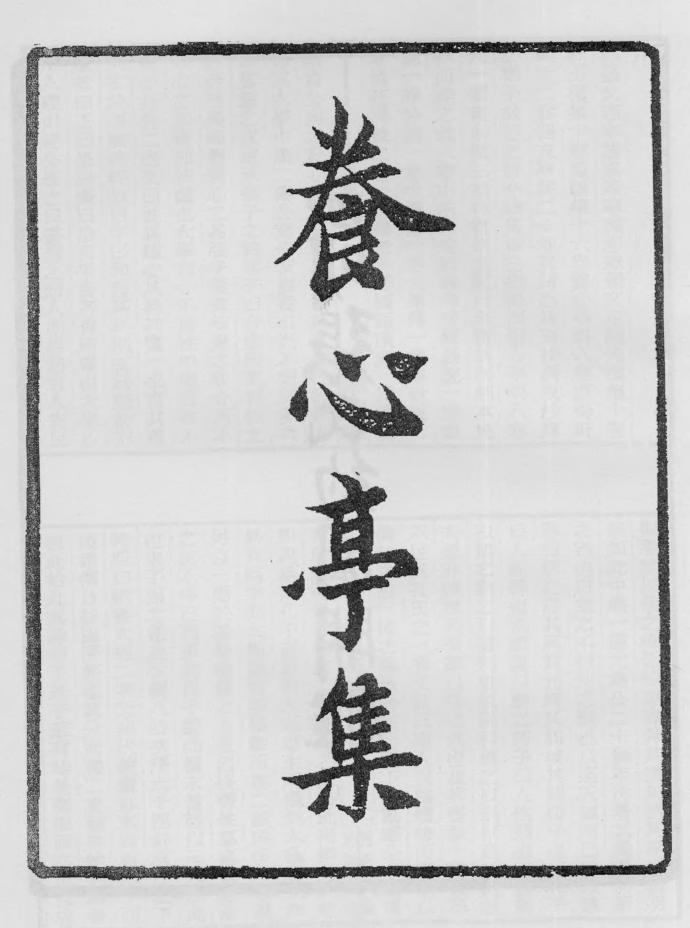 養心亭集